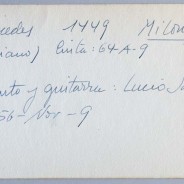 1449 Milon
iano) Cinta: 64-A-9
nto y guitarra: Lucio
56-Nov-9